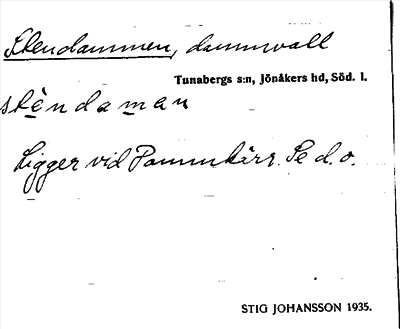 Stendammen, dammvall
Tunabergs s:n, Jönåkers hd, Söd. l.
stèndaman
Ligger vid Dammkärr. Se d. o.
STIG JOHANSSON 1935.